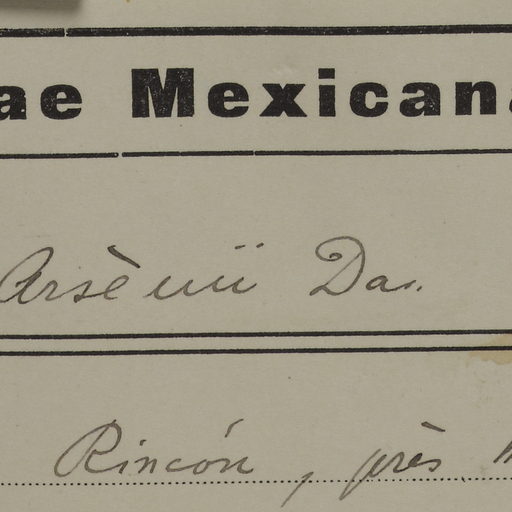 ae Mexicana
Arsènii Da.
Rincón, près